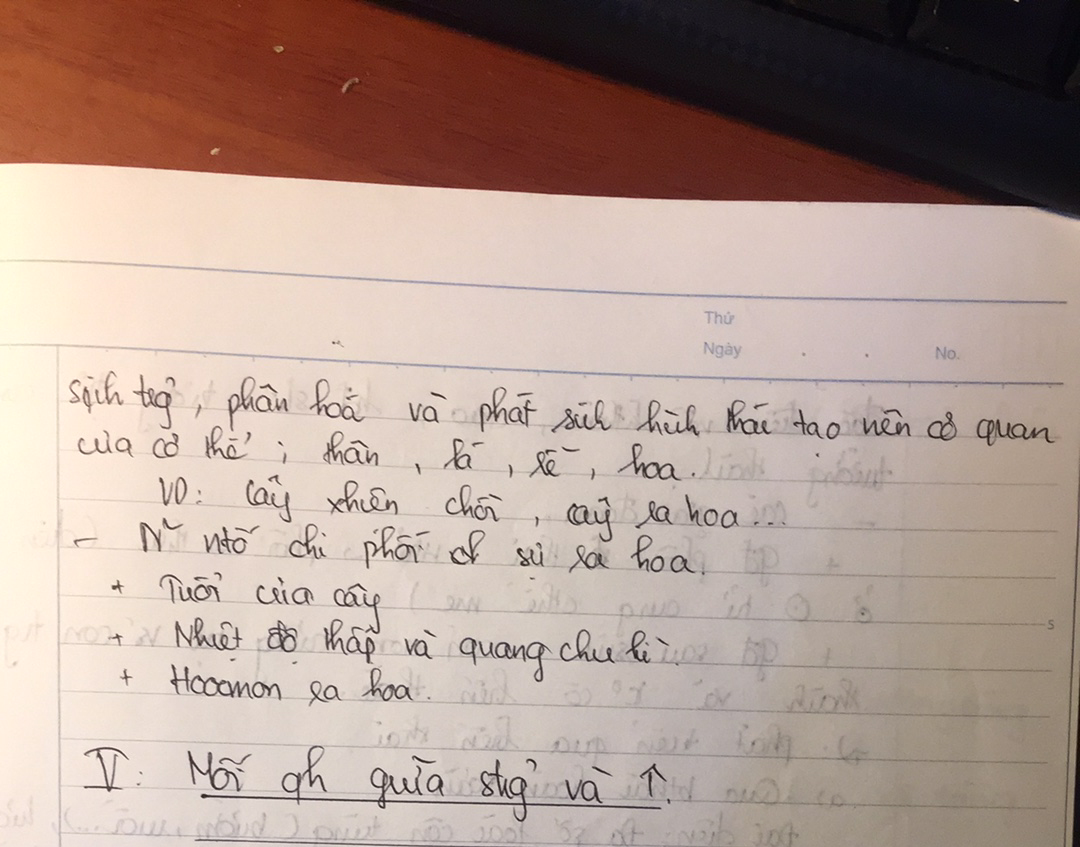 Thứ
Ngày . . No.
sinh trg, phân hoá và phát sinh hình thái tạo nên cơ quan
của cơ thể ; thân , lá , rễ , hoa.
VD: cây nhiên chồi , cây ra hoa...
- N~ ntố chi phối sự ra hoa.
+ Tuổi của cây
+ Nhiệt độ thấp và quang chu kì.
+ Hooomon ra hoa.
V: Mối qh giữa stg và ↑.